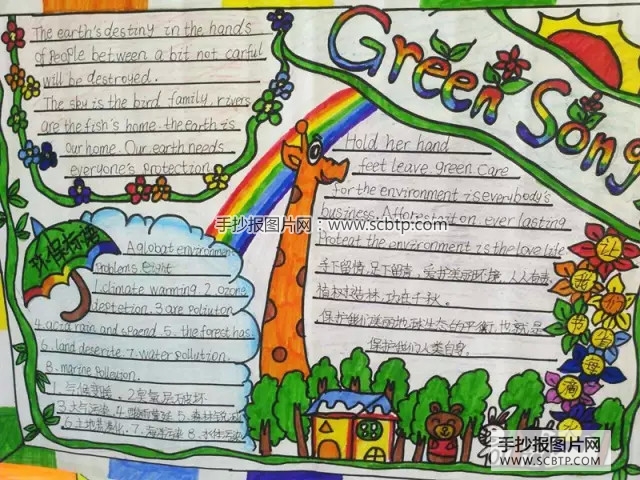 Green Song
The earth's destiny in the hands
of People between a bit not carful
will be destroyed.
The sky is the bird family, rivers
are the fish's home. the earth is
our home. Our earth needs
everyone's protection
Hold her hand
feet leave green care
for the environment is everybody's
business. Afforestation. ever lasting
Protect the environment is the love life
手下留情,足下留青,爱护美丽环境,人人有责,
植树造林,功在千秋。
保护我们美丽地球生态的平衡,也就是
保护我们人类自身。
手抄报图片网
www.scbtp.com
A global environment
problems eight
1.climate warming. 2. ozone
depletation. 3. are pollution
4. acid rain and 5. the forest has
6. land desertie. 7. water pollution.
8. marine Pollution.
1. 2.臭氧层破坏
3. 4. 5.森林
6.土地 7.海洋污染 8.水体污染
让
我
们
母
滴
手抄报图片网
WWW.SCBTP.COM